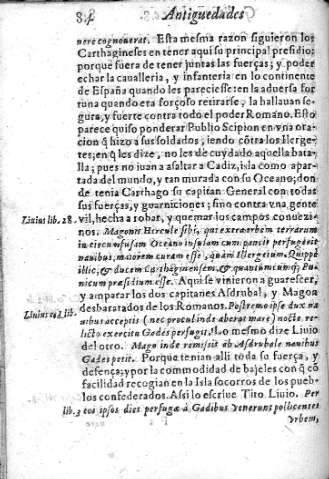 84 Antiguedades
nere cognouerat. Esta mesma razon siguieron los
Carthagineses en tener aqui su principal presidio;
porque fuera de tener juntas las fuerças; y poder
echar la caualleria, y infanteria en lo continente
de España quando les pareciesse: en la aduersa for
tuna quando era forçoso retirarse, la hallauan se-
gura, y fuerte contra todo el poder Romano. Esto
parece quiso ponderar Publio Scipion en vna orat
cion q̃ hizo a sus soldados, iendo cõtra los Ilerge-
tes; en q̃ les dize, no les dè cuydado aquella bata-
lla; pues no iuan a asaltar a Cadiz, isla como apar-
tada del mundo, y tan murada con su Oceano; don
de tenia Carthago su capitan General con todas
sus fuerças, y guarniciones; sino contra vna gente
Liuius lib. 28. vil, hecha a robar, y quemar los campos conuezi-
nos. Magonis Hercule sibi, qui extra orbem terrarum
in circumfusam Oceano insulam cum nauibus
nauibus, maiorem curam esse, quàm Ilergetum. Quippe
illic, & ducem Carthaginensem, & quantumcunq; Pu-
nicum præsidium esse. Aqui se vinieron a guarescer,
y amparar los dos capitanes Asdrubal, y Magon
desbaratados de los Romanos. Postremo ipse dux na
Liuius ibid. lib. uibus acceptis (nec procul inde aberat mare) nocte re-
licto exercitu Gades perfugit. Lo mesmo dize Liuio
del otro. Mago inde remissis ab Asdrubale nauibus
Gades petit. Porque tenian alli toda su fuerça, y
defença; y por la commodidad de bajeles con q̃ cõ
facilidad recogian en la Isla socorros de los pueb-
los confederados. Asi lo escriue Tito Liuio. Per
lib. 3 eos ipsos dies perfugæ à Gadibus venerunt pollicentes
vrbem,